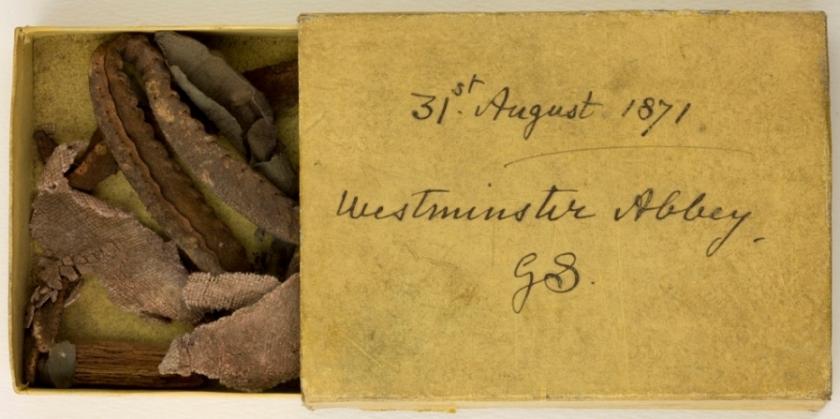 31st August 1871
Westminster Abbey.
GS.